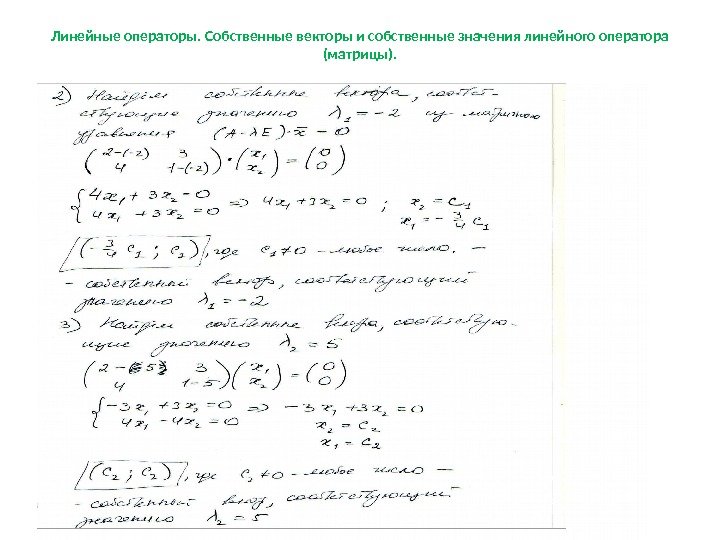 Линейные операторы. Собственные векторы и собственные значения линейного оператора
(матрицы).
2) Найдём собственные вектора, соответ-
ствующие значению λ₁ = -2 из матричного
уравнения (A - λE)·x̄ = 0
(2-(-2) 3; 4 1-(-2))·(x₁; x₂) = (0; 0)
{4x₁ + 3x₂ = 0; 4x₁ + 3x₂ = 0 ⇒ 4x₁ + 3x₂ = 0 ; x₂ = C₁
x₁ = - 3/4 C₁
(- 3/4 C₁ ; C₁), где C₁ ≠ 0 - любое число. -
- собственный вектор, соответствующий
значению λ₁ = -2
3) Найдём собственные вектора, соответствую-
щие значению λ₂ = 5
(2-5 3; 4 1-5)(x₁; x₂) = (0; 0)
{-3x₁ + 3x₂ = 0; 4x₁ - 4x₂ = 0 ⇒ -3x₁ + 3x₂ = 0
x₂ = C₂
x₁ = C₂
(C₂ ; C₂), где C₂ ≠ 0 - любое число -
- собственный вектор, соответствующий
значению λ₂ = 5